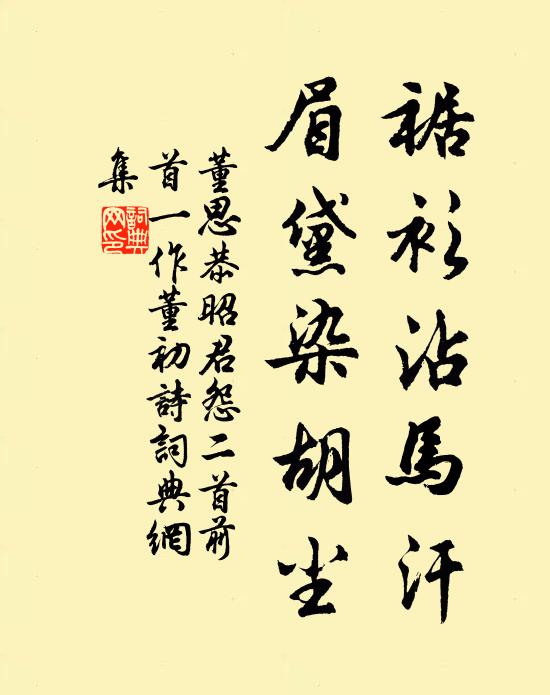 裾衫沾馬汗
眉黛染胡尘
董思恭昭君怨二首前
首一作董初詩詞典網
集
詞典網印